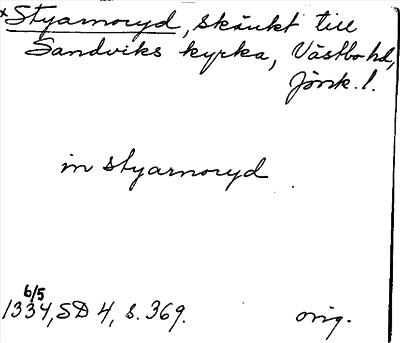 *Styarnoryd, skänkt till
Sandviks kyrka, Västbo hd,
Jönk. l.
in styarnoryd
6/5
1334, SD 4, s. 369. orig.